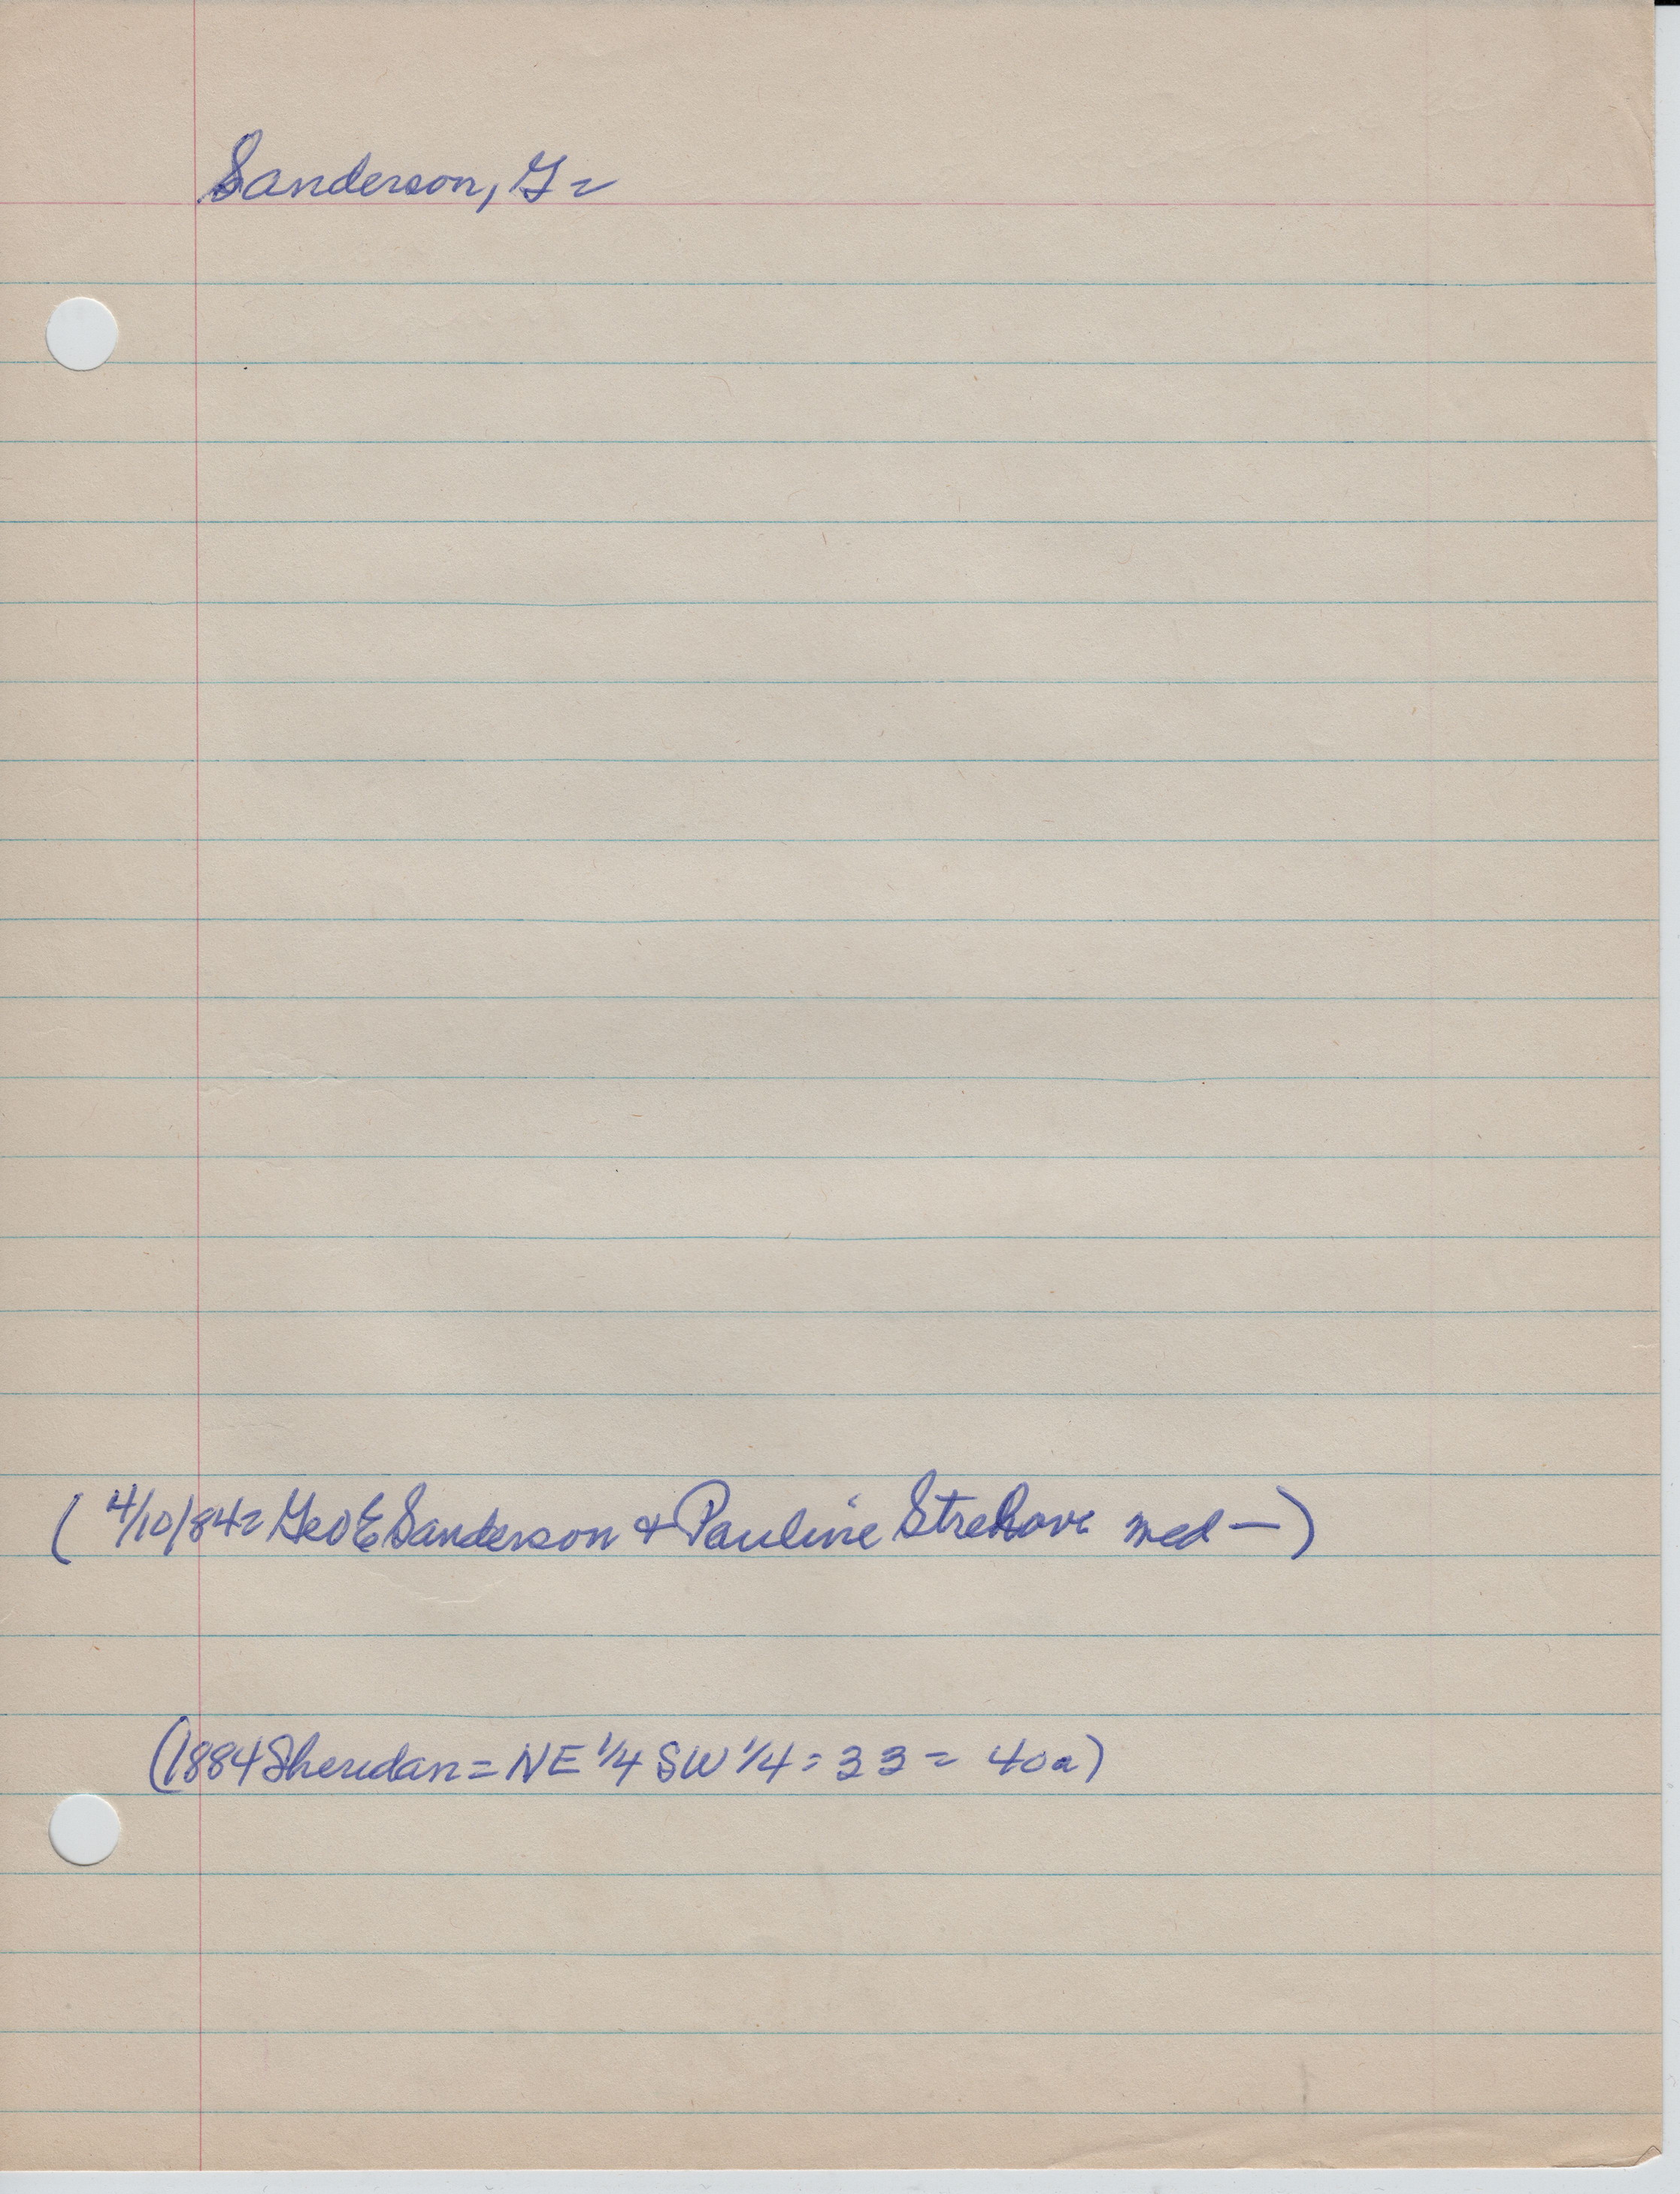 Sanderson, G =
( 4/10/84 = Geo E Sanderson & Pauline med — )
(1884 Sheridan = NE 1/4 SW 1/4 = 33 = 40a)